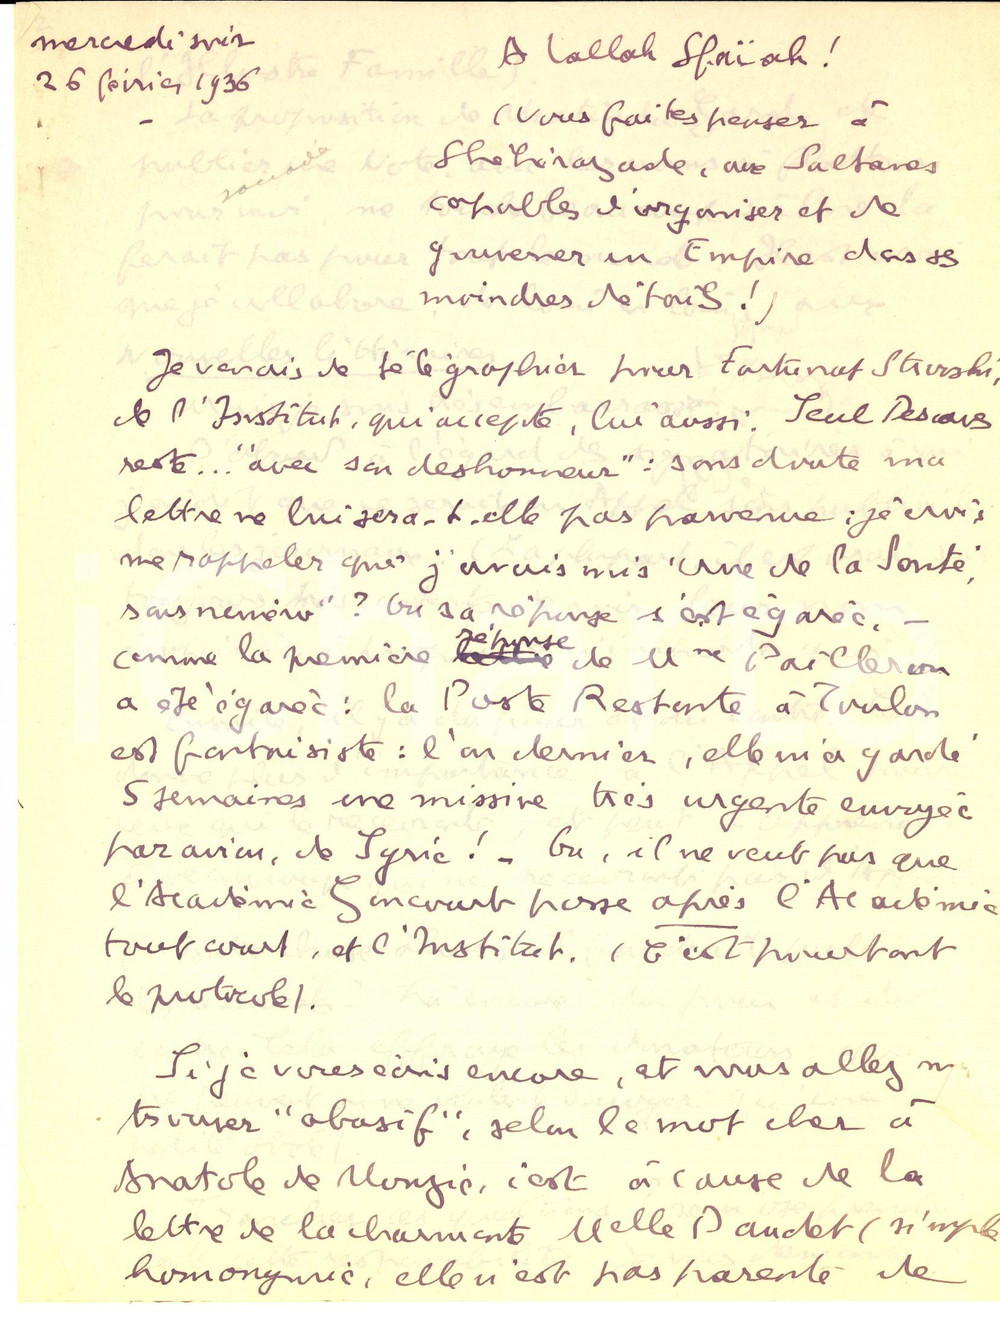 mercredi soir
26 février 1936
A Lallah Sfaïah !
(Vous faites penser à
Shéhérazade, aux Sultanes
capables d'organiser et de
gouverner un Empire dans ses
moindres détails !)
Je venais de télégraphier pour Fortunat Strowski,
de l'Institut, qui accepte, lui aussi. Seul Descaves
reste... "avec son deshonneur" : sans doute ma
lettre ne lui sera-t-elle pas parvenue ; je crois
me rappeler que j'avais mis "rue de la Santé,
sans numéro" ? Ou sa réponse s'est égarée, -
comme la première réponse de Mme Pailleron
a été égarée : la Poste Restante à Toulon
est fantaisiste : l'an dernier, elle m'a gardé
5 semaines une missive très urgente envoyée
par avion, de Syrie ! - Ou, il ne veut pas que
l'Académie Goncourt passe après l'Académie
tout court, et l'Institut. (C'est pourtant
le protocole).
Si je vous écris encore, et vous allez m
trouver "abusif", selon le mot cher à
Anatole de Monzie, c'est à cause de la
lettre de la charmante Melle Daudet (simple
homonymie, elle n'est pas parente de